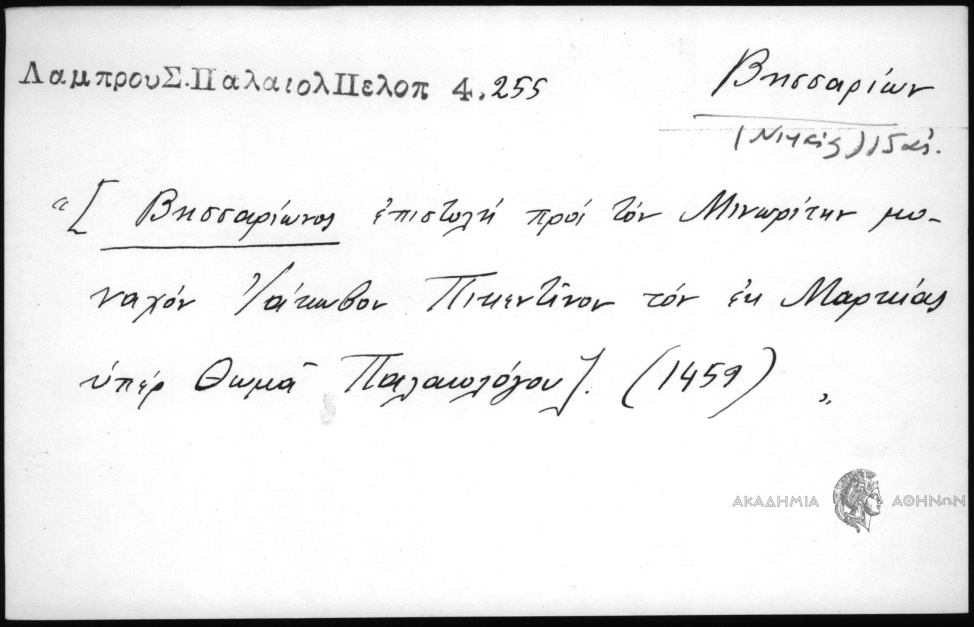 ΛαμπρουΣ.ΠαλαιολΠελοπ 4.255
Βησσαρίων
(Νικαίας) 15 αἰ.
“[ Βησσαρίωνος ἐπιστολὴ πρὸς τὸν Μινωρίτην μο-
ναχὸν Ἰάκωβον Πικεντῖνον τὸν ἐκ Μαρκίας
ὑπὲρ Θωμᾶ Παλαιολόγου]. (1459) „
ΑΚΑΔΗΜΙΑ ΑΘΗΝΩΝ